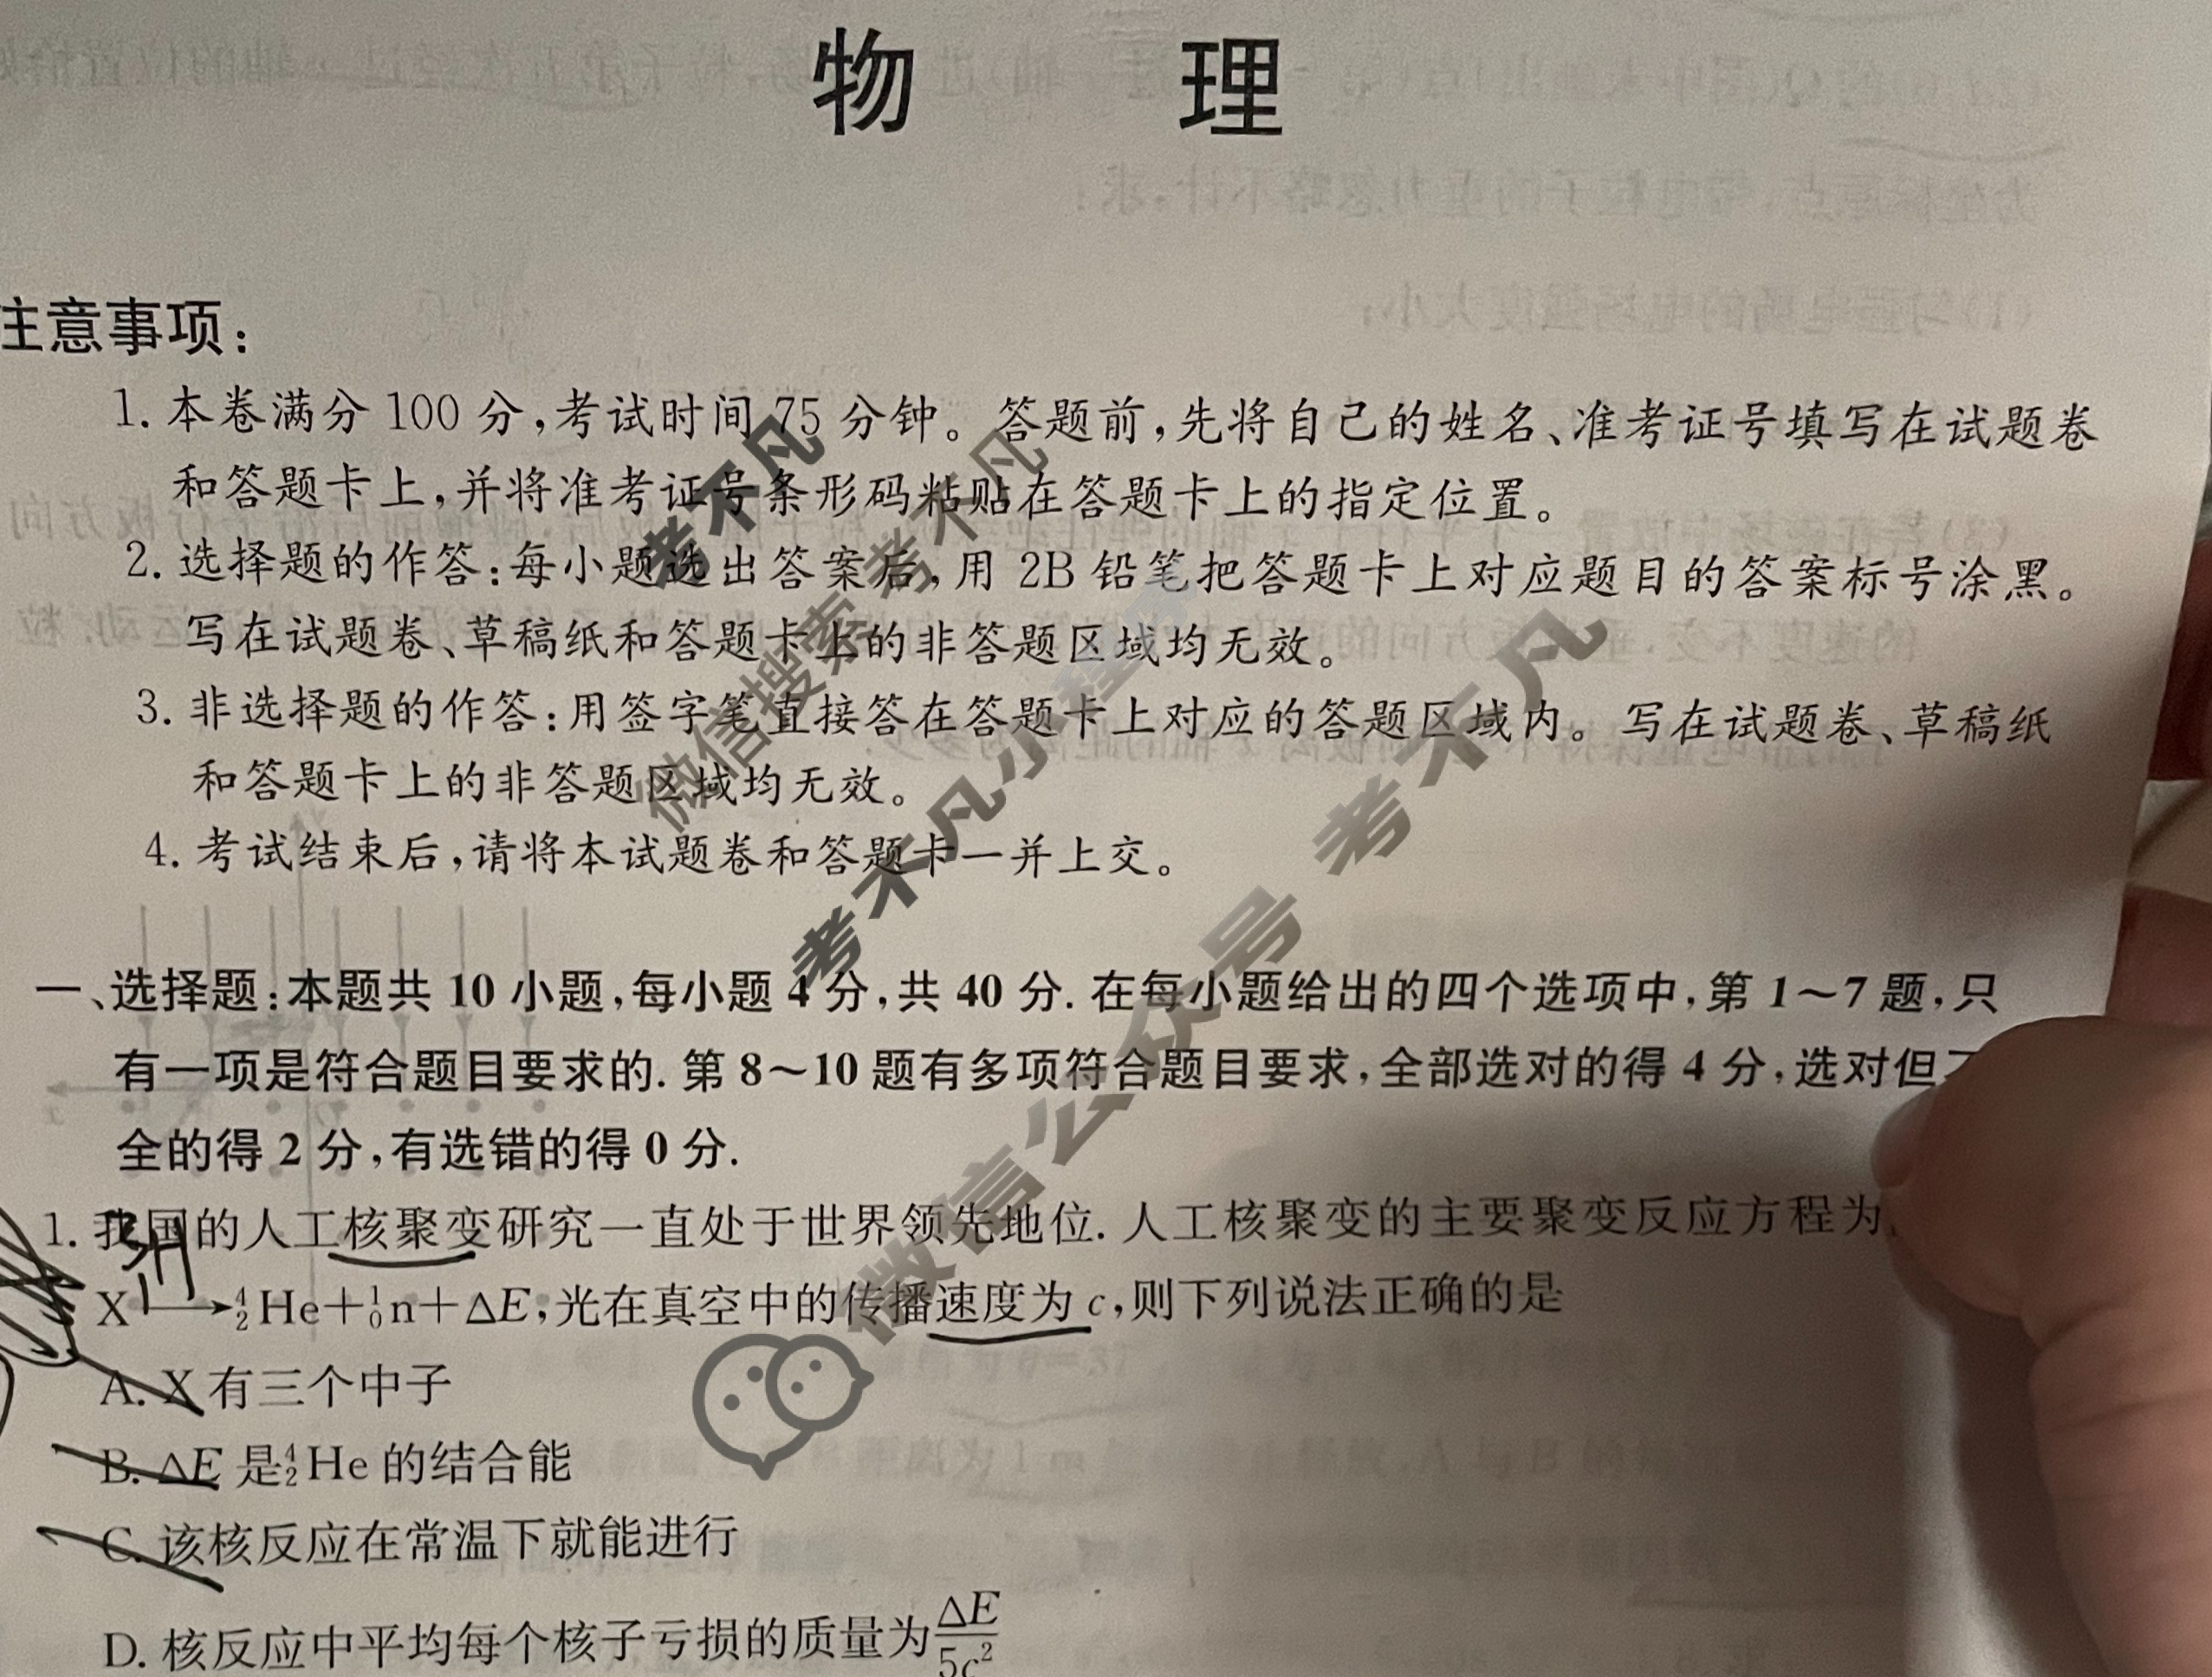 物 理
注意事项：
1. 本卷满分 100 分，考试时间 75 分钟。答题前，先将自己的姓名、准考证号填写在试题卷
和答题卡上，并将准考证号条形码粘贴在答题卡上的指定位置。
2. 选择题的作答：每小题选出答案后，用 2B 铅笔把答题卡上对应题目的答案标号涂黑。
写在试题卷、草稿纸和答题卡上的非答题区域均无效。
3. 非选择题的作答：用签字笔直接答在答题卡上对应的答题区域内。写在试题卷、草稿纸
和答题卡上的非答题区域均无效。
4. 考试结束后，请将本试题卷和答题卡一并上交。
一、选择题：本题共 10 小题，每小题 4 分，共 40 分. 在每小题给出的四个选项中，第 1～7 题，只
有一项是符合题目要求的. 第 8～10 题有多项符合题目要求，全部选对的得 4 分，选对但
全的得 2 分，有选错的得 0 分.
1. 我国的人工核聚变研究一直处于世界领先地位. 人工核聚变的主要聚变反应方程为
³₁H
X⟶⁴₂He+¹₀n+ΔE，光在真空中的传播速度为 c，则下列说法正确的是
A. X 有三个中子
B. ΔE 是⁴₂He 的结合能
C. 该核反应在常温下就能进行
D. 核反应中平均每个核子亏损的质量为ΔE/5c²
考不凡
微信搜索考不凡
考不凡小程序
微信公众号 考不凡